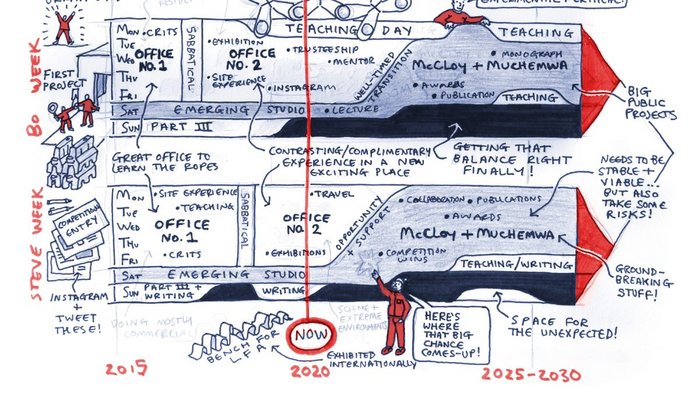 TEACHING DAY
TEACHING
BO WEEK
FIRST PROJECT
MON
TUE
WED
THU
FRI
SAT
SUN
• CRITS
OFFICE NO. 1
SABBATICAL
• EXHIBITION
OFFICE NO. 2
• SITE EXPERIENCE
• TRUSTEESHIP
• MENTOR
• INSTAGRAM
WELL-TIMED TRANSITION
• MONOGRAPH
McCLOY + MUCHEMWA
• AWARDS
• PUBLICATION
TEACHING
EMERGING STUDIO
• LECTURE
PART III
BIG PUBLIC PROJECTS
GREAT OFFICE TO LEARN THE ROPES
CONTRASTING/COMPLIMENTARY EXPERIENCE IN A NEW EXCITING PLACE
GETTING THAT BALANCE RIGHT FINALLY!
NEEDS TO BE STABLE + VIABLE... BUT ALSO TAKE SOME RISKS!
STEVE WEEK
COMPETITION ENTRY
INSTAGRAM + TWEET THESE!
MON
TUE
WED
THU
FRI
SAT
SUN
• SITE EXPERIENCE
• TEACHING
OFFICE NO. 1
• CRITS
SABBATICAL
• TRAVEL
OFFICE NO. 2
• EXHIBITIONS
OPPORTUNITY + SUPPORT
• COLLABORATION
• PUBLICATIONS
• AWARDS
McCLOY + MUCHEMWA
• COMPETITION WINS
TEACHING/WRITING
EMERGING STUDIO
PART III + WRITING
WRITING
GROUND-BREAKING STUFF!
DOING MOSTLY COMMERCIAL
EXTREME ENVIRONMENTS
BENCH FOR LFA
NOW
EXHIBITED INTERNATIONALLY
HERE'S WHERE THAT BIG CHANCE COMES-UP!
SPACE FOR THE UNEXPECTED!
2015
2020
2025-2030